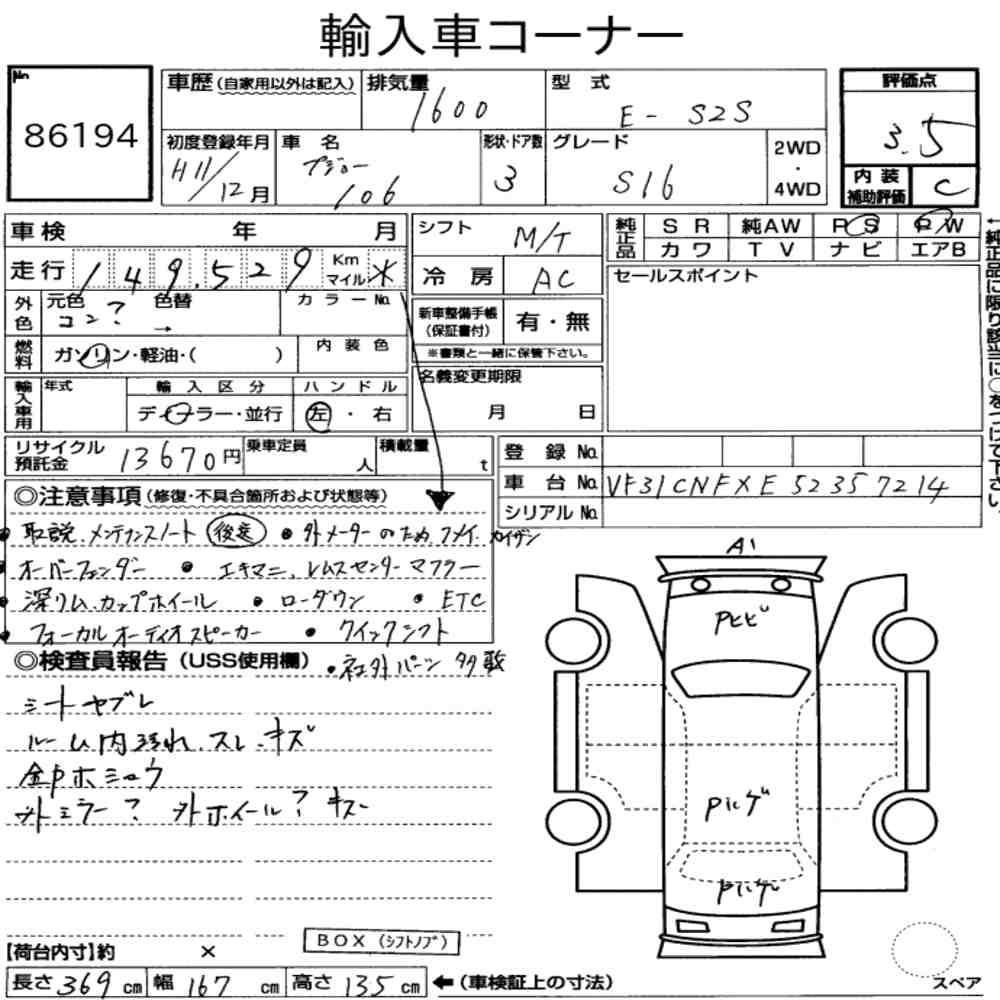 輸入車コーナー
No. 86194
車歴 (自家用以外は記入) 排気量 1600 型 式 E- S2S 評価点 3.5
初度登録年月 H11/12月 車 名 プジョー 106 形状・ドア数 3 グレード S16 2WD・4WD 内 装 補助評価 C
車検 年 月 シフト M/T 純正品 S R 純AW P S P W
カワ T V ナビ エアB
走行 149,529 Km マイル ※ 冷 房 AC セールスポイント
外色 元色 コン? 色替 → カラーNo. 新車整備手帳 (保証書付) 有・無
※書類と一緒に保管下さい。
燃料 ガソリン・軽油・( ) 内装色
名義変更期限 月 日
輸入車用 年式 輸入区分 ディーラー・並行 ハンドル 左・右
←純正品に限り該当に○をつけて下さい。
リサイクル預託金 13670円 乗車定員 人 積載量 t 登 録 No.
車 台 No. VF31CNFXE52357214
シリアル No.
◎注意事項 (修復・不具合箇所および状態等)
• 取説、メンテナンスノート 後送 • 外メーターのため、フメイ、カイザン
• オーバーフェンダー • エキマニ、レムスセンターマフラー
• 深リム、カップホイール • ローダウン • ETC
• フォーカルオーディオスピーカー • クイックシフト
◎検査員報告 (USS使用欄) • 社外パーツ多数
シートヤブレ
ルーム内汚れ、スレ、キズ
外ミラー? 外ホイール? キズ
A1
Pビビ
Pハゲ
Pハゲ
BOX (シフトノブ)
【荷台内寸】約 ×
長さ 369 cm 幅 167 cm 高さ 135 cm ←(車検証上の寸法)
スペア